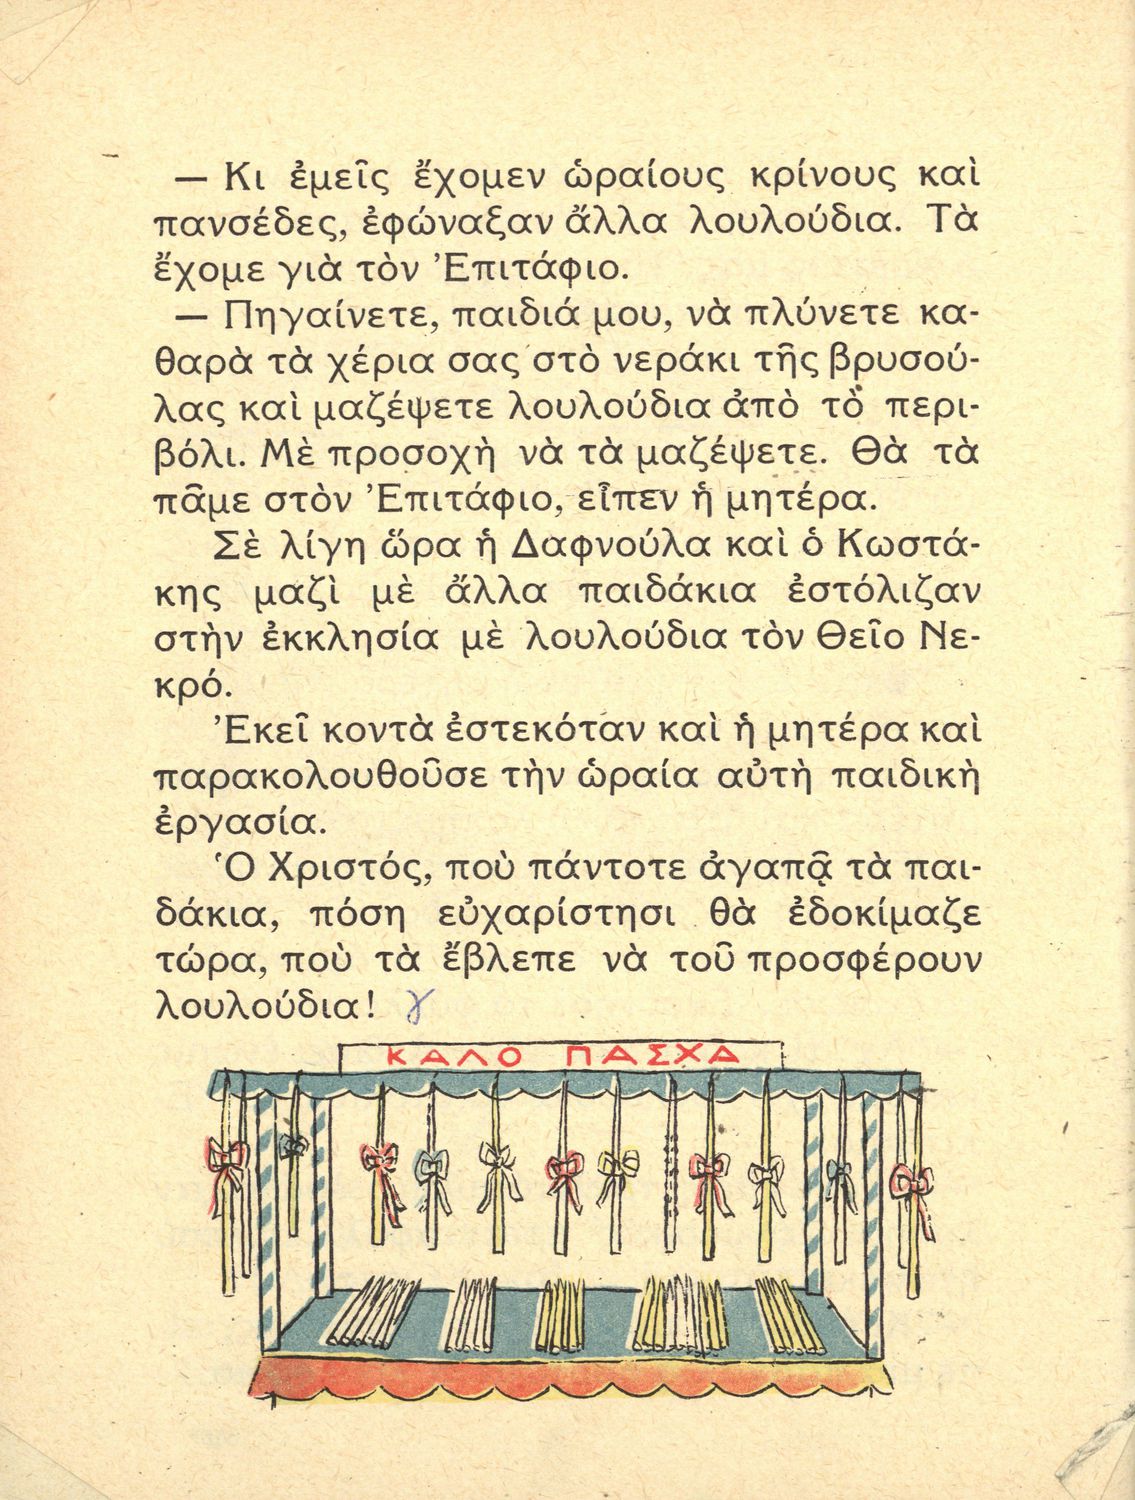 — Κι ἐμεῖς ἔχομεν ὡραίους κρίνους καὶ
πανσέδες, ἐφώναξαν ἄλλα λουλούδια. Τὰ
ἔχομε γιὰ τὸν Ἐπιτάφιο.
— Πηγαίνετε, παιδιά μου, νὰ πλύνετε κα-
θαρὰ τὰ χέρια σας στὸ νεράκι τῆς βρυσού-
λας καὶ μαζέψετε λουλούδια ἀπὸ τὸ περι-
βόλι. Μὲ προσοχὴ νὰ τὰ μαζέψετε. Θὰ τὰ
πᾶμε στὸν Ἐπιτάφιο, εἶπεν ἡ μητέρα.
Σὲ λίγη ὥρα ἡ Δαφνούλα καὶ ὁ Κωστά-
κης μαζὶ μὲ ἄλλα παιδάκια ἐστόλιζαν
στὴν ἐκκλησία μὲ λουλούδια τὸν Θεῖο Νε-
κρό.
Ἐκεῖ κοντὰ ἐστεκόταν καὶ ἡ μητέρα καὶ
παρακολουθοῦσε τὴν ὡραία αὐτὴ παιδικὴ
ἐργασία.
Ὁ Χριστός, ποὺ πάντοτε ἀγαπᾷ τὰ παι-
δάκια, πόση εὐχαρίστησι θὰ ἐδοκίμαζε
τώρα, ποὺ τὰ ἔβλεπε νὰ τοῦ προσφέρουν
λουλούδια! γ
ΚΑΛΟ ΠΑΣΧΑ